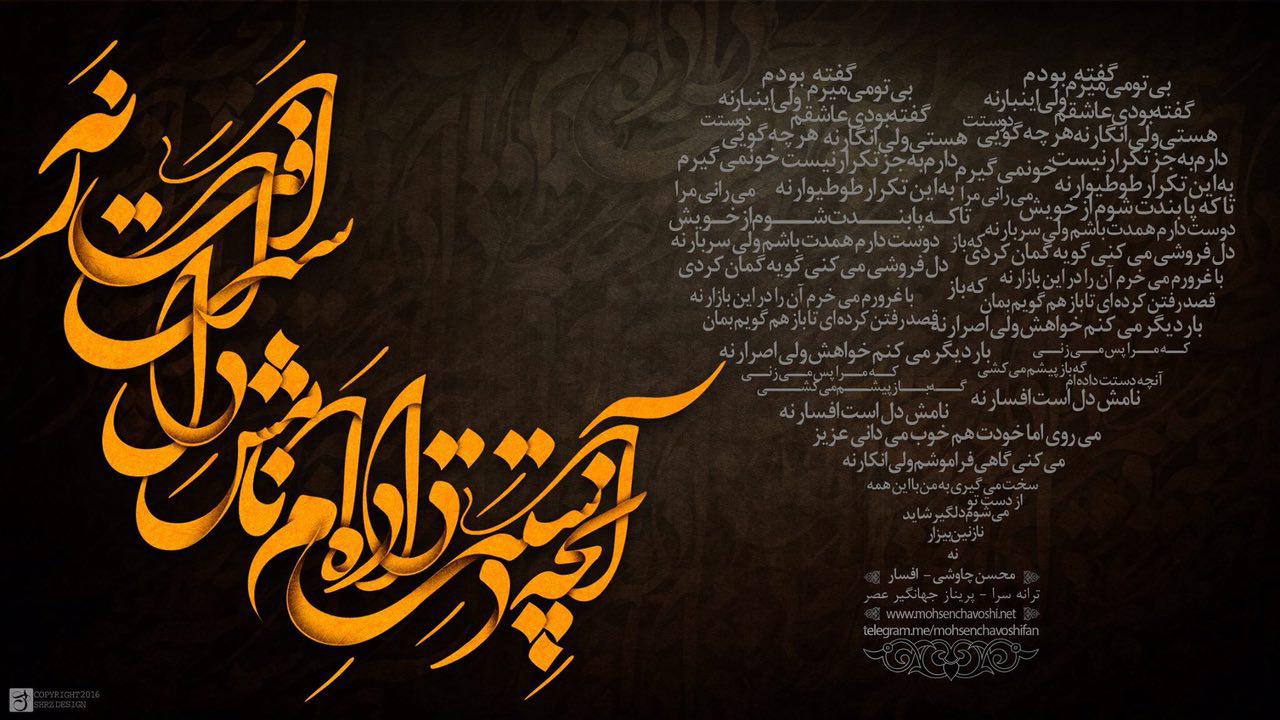 آنچه دستت داده ام نامش دل است افسار نه
گفته بودم
گفته بودم
بی تو می میرم ولی اینبار نه
بی تو می میرم ولی اینبار نه
گفته بودی عاشقم
گفته بودی عاشقم
دوستت
دوستت
هستی ولی انگار نه هر چه گویی
هستی ولی انگار نه هر چه گویی
دارم به جز تکرار نیست خو نمی گیرم
دارم به جز تکرار نیست خو نمی گیرم
به این تکرار طوطیوار نه
می رانی مرا
به این تکرار طوطیوار نه
می رانی مرا
تا که پابندت شوم از خویش
تا که پابندت شوم از خویش
دوست دارم همدمت باشم ولی سربار نه
دوست دارم همدمت باشم ولی سربار نه
که باز
دل فروشی می کنی گویه گمان کردی
دل فروشی می کنی گویه گمان کردی
با غرورم می خرم آن را در این بازار نه
که باز
با غرورم می خرم آن را در این بازار نه
قصد رفتن کرده ای تا باز هم گویم بمان
قصد رفتن کرده ای تا باز هم گویم بمان
بار دیگر می کنم خواهش ولی اصرار نه
بار دیگر می کنم خواهش ولی اصرار نه
که مرا پس می زنی
که مرا پس می زنی
گه باز پیشم می کشی
گه باز پیشم می کشی
آنچه دستت داده ام
نامش دل است افسار نه
نامش دل است افسار نه
می روی اما خودت هم خوب می دانی عزیز
می کنی گاهی فراموشم ولی انکار نه
سخت می گیری به من با این همه
از دست تو
می شوم دلگیر شاید
نازنین بیزار
نه
محسن چاوشی - افسار
ترانه سرا - پریناز جهانگیر عصر
www.mohsenchavoshi.net
telegram.me/mohsenchavoshifan
COPYRIGHT 2016
SHRZ DESIGN